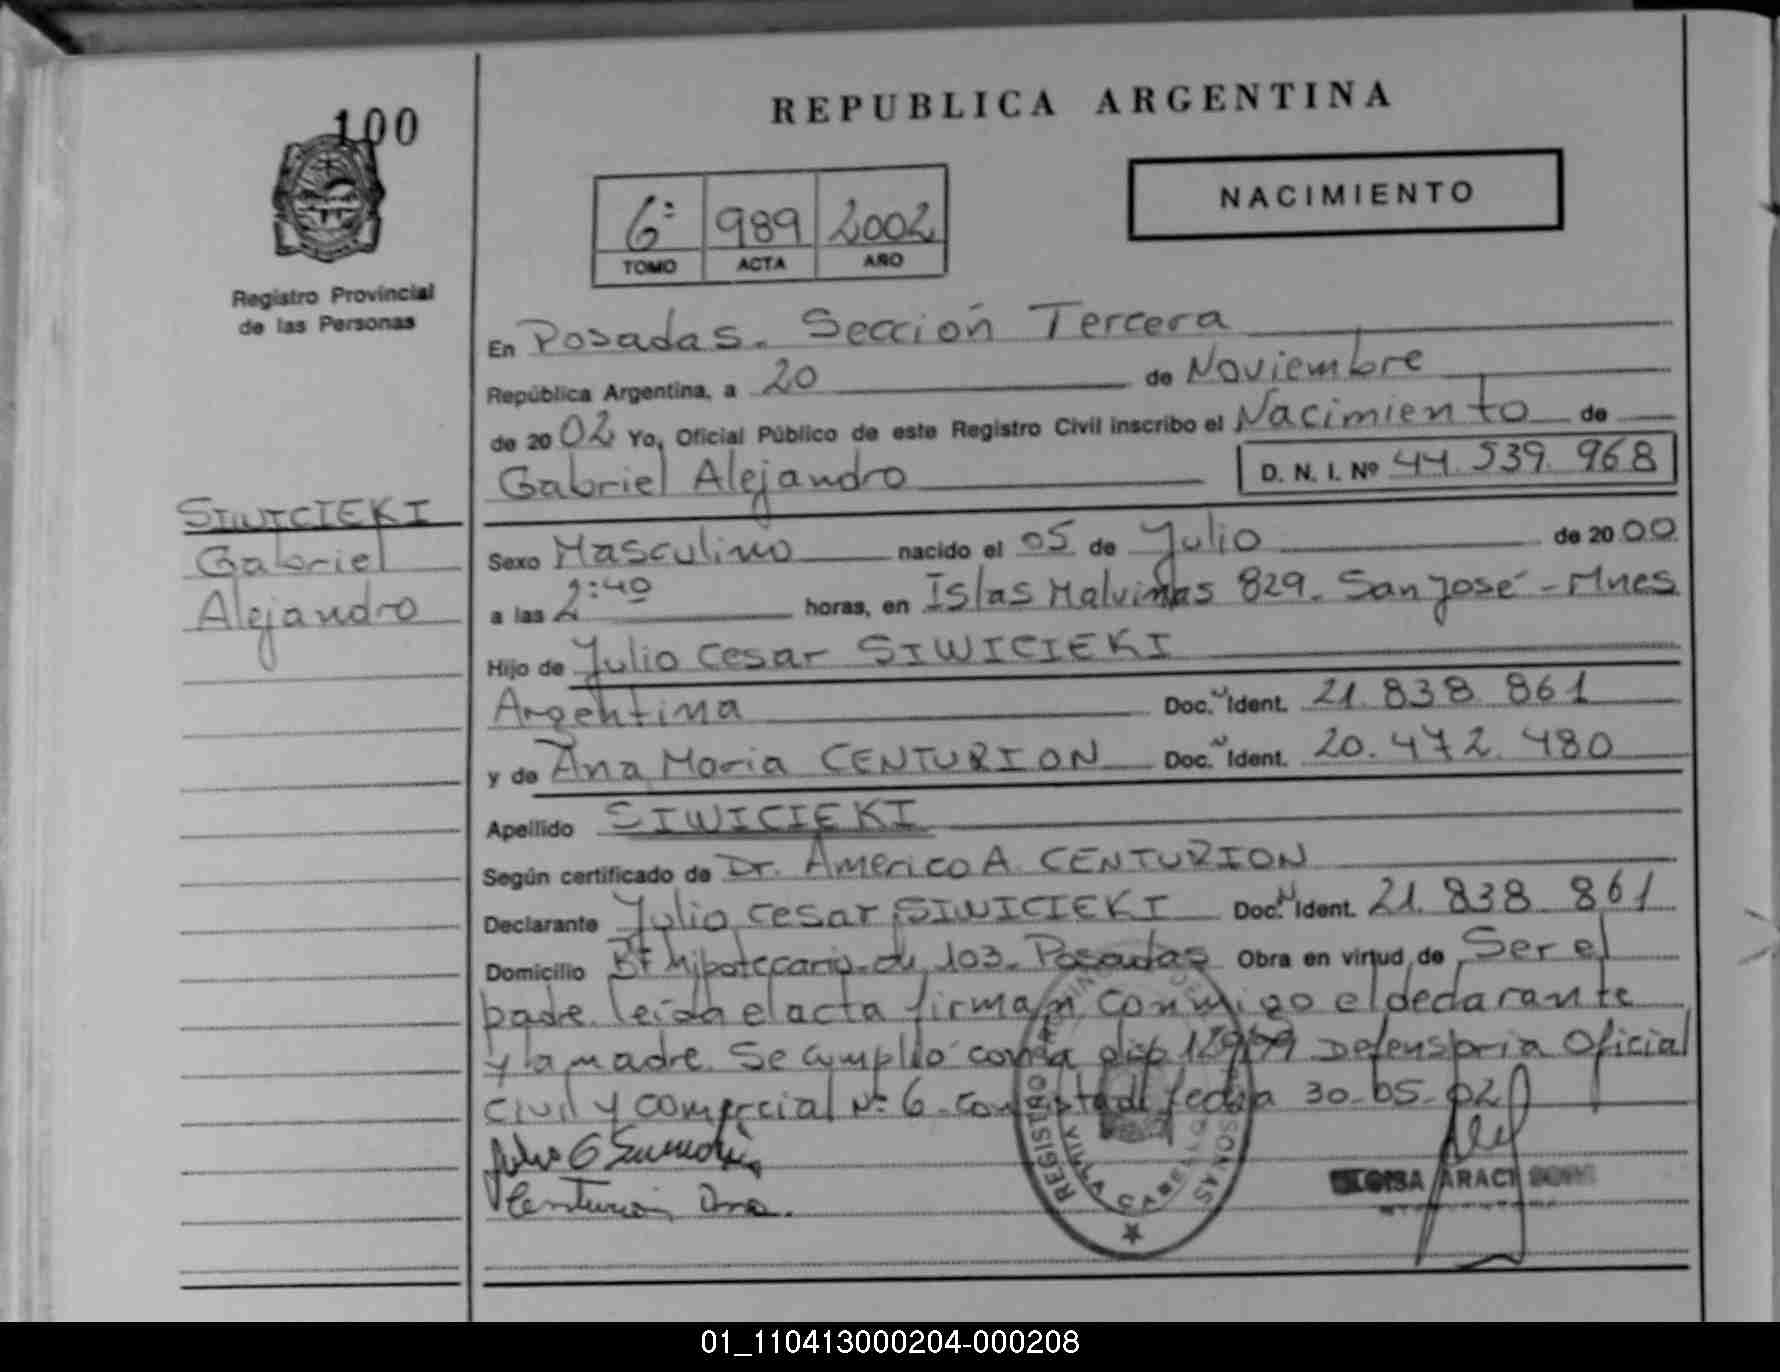 100
REPUBLICA ARGENTINA
NACIMIENTO
6º 989 2002
TOMO ACTA AÑO
Registro Provincial
de las Personas
En Posadas. Sección Tercera
República Argentina, a 20 de Noviembre
de 2002 Yo, Oficial Público de este Registro Civil inscribo el Nacimiento de
Gabriel Alejandro D. N. I. Nº 44.539.968
SIWICIEKI
Gabriel
Alejandro
Sexo Masculino nacido el 05 de Julio de 2000
a las 2:40 horas, en Islas Malvinas 829. San José - Mnes
Hijo de Julio Cesar SIWICIEKI
Argentina Doc. Ident. 21.838.861
y de Ana Maria CENTURION Doc. Ident. 20.472.480
Apellido SIWICIEKI
Según certificado de Dr. Americo A. CENTURION
Declarante Julio Cesar SIWICIEKI Doc. Ident. 21.838.861
Domicilio Bº hipotecario 103. Posadas Obra en virtud de Ser el
padre. leída el acta firman conmigo el declarante
y la madre. Se cumplió con la 129/99 Defensoria Oficial
Civil y comercial Nº 6. fecha 30-05-02
Centurion Ana.
REGISTRO
ARACI
01_110413000204-000208